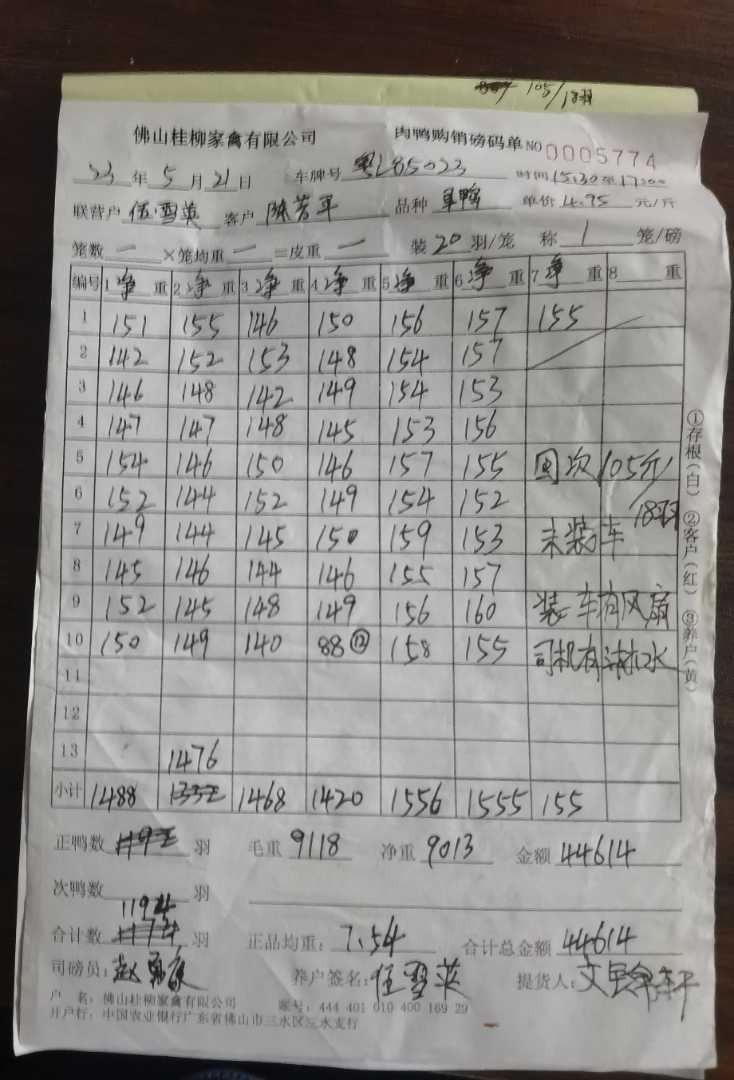 105/18羽
佛山桂柳家禽有限公司 肉鸭购销磅码单 NO 0005774
23 年 5 月 21 日 车牌号 粤L85023 时间 15:30至17:00
联营户 伍雪英 客户 陈芳平 品种 单价 4.95 元/斤
笼数 一 ×笼均重 一 =皮重 一 装 20 羽/笼 称 1 笼/磅
编号 1 净 重 2 净 重 3 净 重 4 净 重 5 净 重 6 净 重 7 净 重 8 重
1 151 155 146 150 156 157 155
2 142 152 153 148 154 157
3 146 148 142 149 154 153
4 147 147 148 145 153 156
5 154 146 150 146 157 155 回次 105斤/18羽
6 152 144 152 149 154 152
7 149 144 145 150 159 153 未装车
8 145 146 144 146 155 157
9 152 145 148 149 156 160 装车有风扇
10 150 149 140 88⑫ 158 155 司机有淋水
11
12
13 1476
小计 1488 1468 1420 1556 1555 155
正鸭数 羽 毛重 9118 净重 9013 金额 44614
次鸭数 羽
1194
合计数 羽 正品均重: 7.54 合计总金额 44614
司磅员: 赵 养户签名: 伍雪英 提货人:
户 名: 佛山桂柳家禽有限公司 账号: 444 401 010 400 169 29
开户行: 中国农业银行广东省佛山市三水区三水支行
①存根(白) ②客户(红) ③养户(黄)